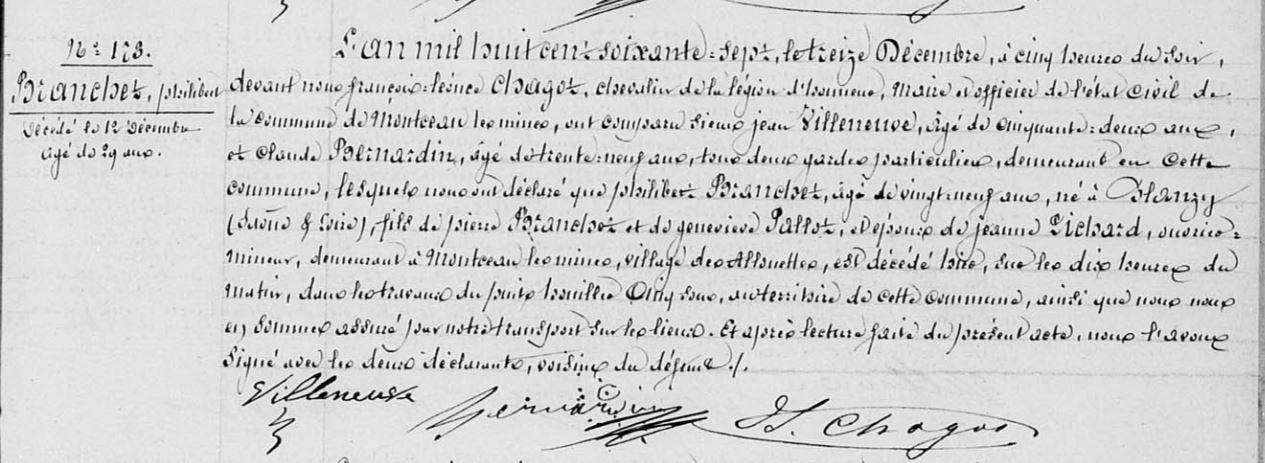 N.º 173.
Branchet, philibert
Décédé le 12 Décembre
âgé de 29 ans.
L'an mil huit cent soixante-sept, le treize Décembre, à cinq heures du soir,
devant nous françois-léonce Chagot, chevalier de la légion d'honneur, Maire et officier de l'état civil de
la commune de Montceau les mines, ont comparu sieurs jean Villeneuve, âgé de cinquante-deux ans,
et claude Bernardin, âgé de trente-neuf ans, tous deux gardes particuliers, demeurant en cette
commune, lesquels nous ont déclaré que philibert Branchet, âgé de vingt-neuf ans, né à Blanzy
(Saône & Loire), fils de pierre Branchet et de geneviève Pallot, et époux de jeanne Lichard, ouvrier-
mineur, demeurant à Montceau les mines, village des Allouettes, est décédé hier, sur les dix heures du
matin, dans les travaux du puits houiller Cinq-sous, au territoire de cette commune, ainsi que nous nous
en sommes assuré par notre transport sur les lieux. Et après lecture faite du présent acte, nous l'avons
signé avec les deux déclarants, voisins du défunt ./.
Villeneuve
Bernardin
L. Chagot